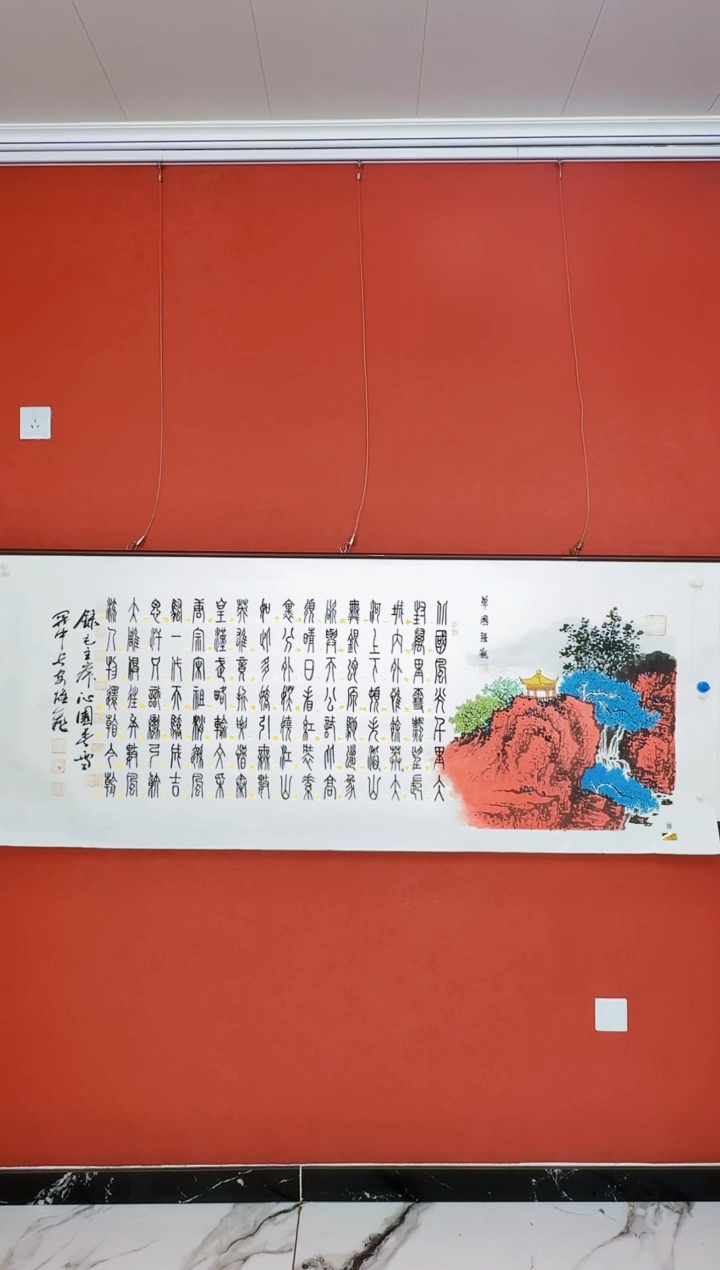 北國風光千里冰
封萬里雪飄望長
城內外惟餘莽大
河上下頓失滔山
舞銀蛇原馳蠟象
欲與天公試比高
須晴日看紅裝素
裹分外妖嬈江山
如此多嬌引無數
英雄競折腰惜秦
皇漢武略輸文采
唐宗宋祖稍遜風
騷一代天驕成吉
思汗只識彎弓射
大雕俱往矣數風
流人物還看今朝
錄毛主席沁園春雪